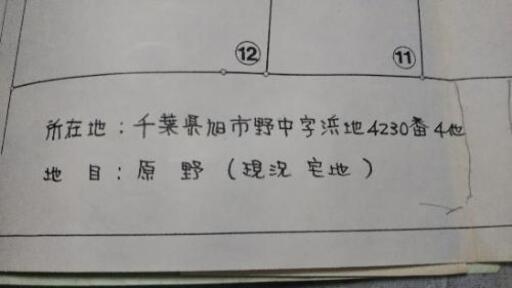 ⑫
⑪
所在地：千葉県旭市野中字浜地4230番4他
地　目：原　野（現況 宅地）